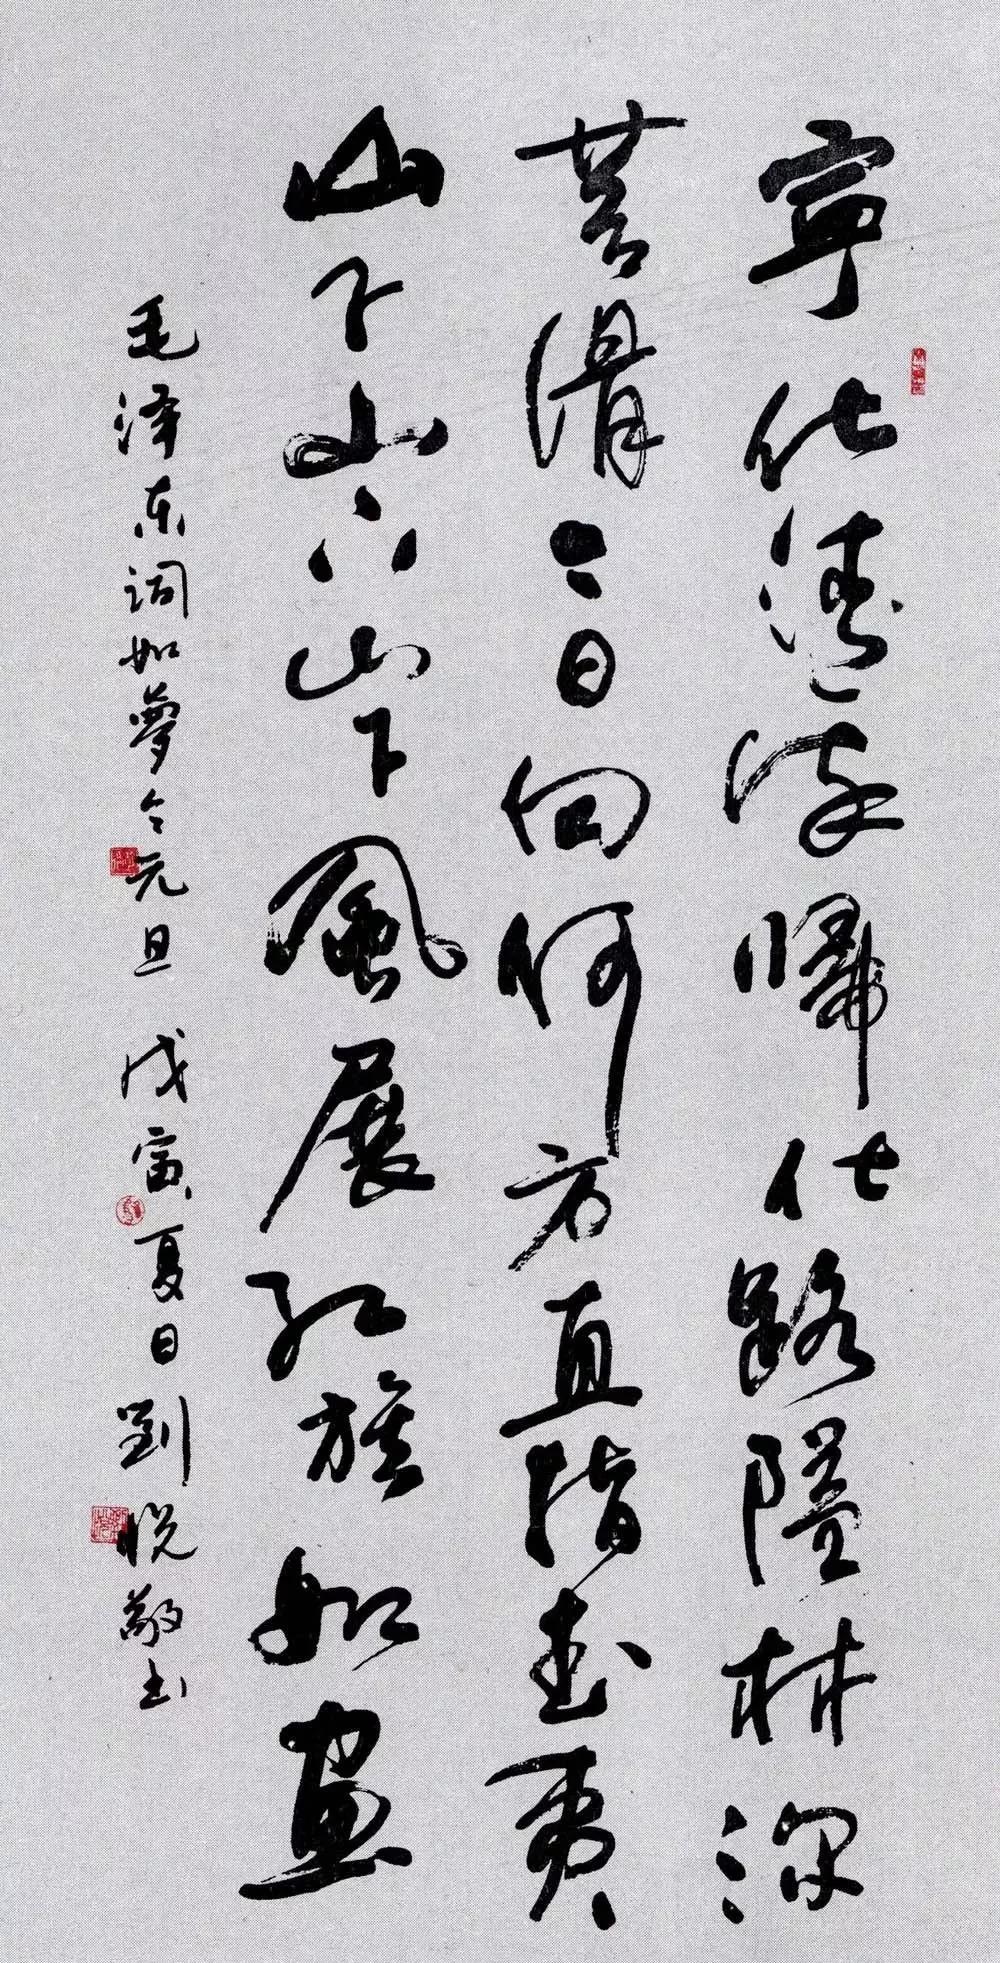 寧化清流歸化路隘林深
苔滑今日向何方直指武夷
山下山下山下風展紅旗如畫
毛泽东词如夢令元旦 戊寅夏日劉悦敬书